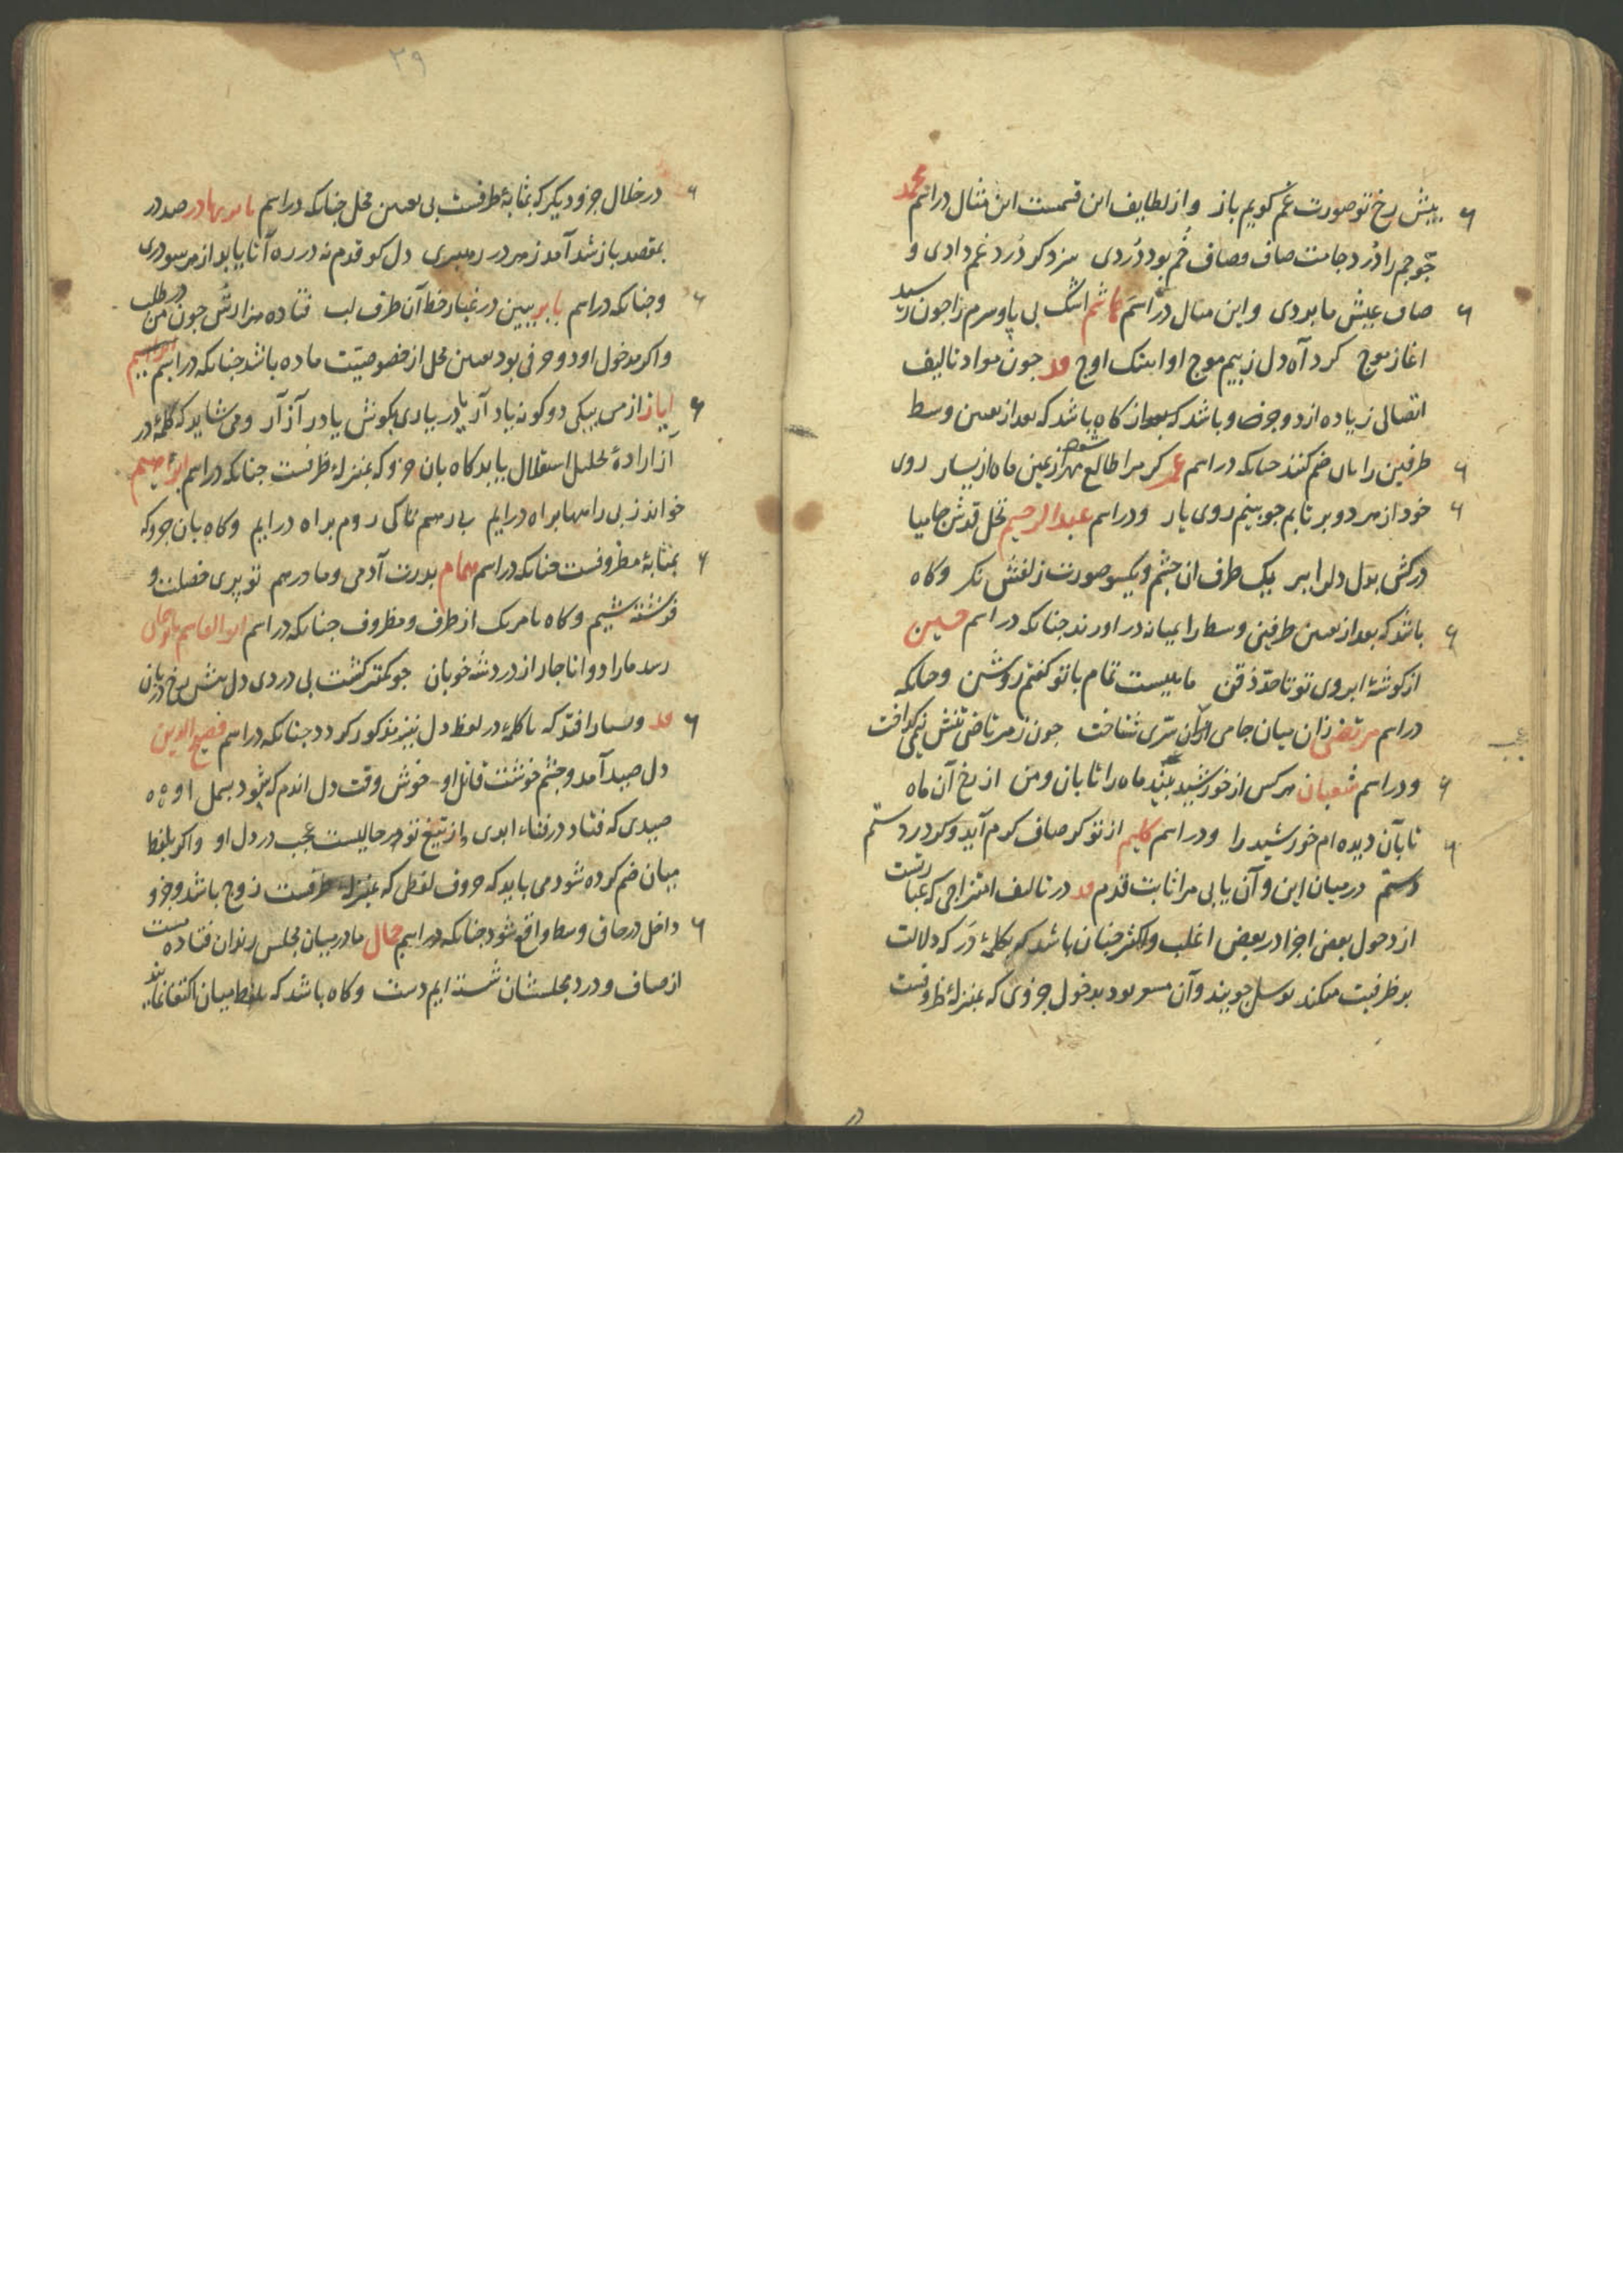 پیش رخ تو صورت غم کویم باز و از لطایف این قسمست این مثال در اسم محمد
چو جم را دُرد جامت صاف و صاف خُم بود دُردی سزد کر دُرد غم دادی و
صاف عیش ما بردی و این مثال در اسم هاشم اشک بی پا و سرم را چون رسید
اغاز موج کرد آه دل ز بیم موج او اینک اوج چون مواد تالیف
اتصالی زیاده از دو جزو باشد که کاه باشد که بعد از تعین وسط
طرفین را بآن ضم کنند چنانکه در اسم عمر کر مرا طالع شود از یمین ماه از یسار روی
خود از هر دو بر تابم چو بینم روی یار و در اسم عبدالرحیم نخل قدش جامیا
درکش بدل دلرا ببر یک طرف ان چشم و یکسو صورت زلفش نکر و کاه
باشد که بعد از تعین طرفین وسط را بمیانه در اورند چنانکه در اسم حسین
از کوشهٔ ابروی تو تا حدّ ذقن ماهیست تمام با تو کفتم روشن و چنانکه
در اسم مرتضی زان میان جامی سرّی شناخت چون ز مرتاضی تنش نیمی کداخت
و در اسم شعبان هرکس از خورشید بیند ماه را تابان و من از رخ آن ماه
تابان دیده ام خورشید را و در اسم کلیم از تو کر صاف کرم آید وکر درد ستم
در میان این و آن یابی مرا ثابت قدم در تالیف امتزاجی که عبارتست
از دخول بعض اجزا در بعضی اغلب و اکثر چنان باشد که بکلمهٔ در که دلالت
بر ظرفیت میکند توسل جویند و آن میسر بود بدخول جزوی که بمنزلهٔ ظروفست
۳۹
در خلال جزو دیکر که بمثابهٔ ظرفست بی تعین محل چنانکه در اسم بهادر صد در
بمقصد باز شد آمد ز هر در رهبری دل کو قدم نه در ره آنا یابد از هر سو دری
و چنانکه در اسم بابر ببین در غبار خط آن طرف لب فتاده هزارش چون من در طلب
و اکر مدخول او دو حرفی بود تعین محل از خصوصیت ماده باشد چنانکه در اسم ابراهیم
ایاز از من بیکی دو کونه یاد آر یا در یاری بکوش یا در آزار و می شاید که کلمهٔ در
از ارادهٔ تحلیل استقلال یابد کاه بان جزو که بمنزلهٔ ظرفست چنانکه در اسم ابراهیم
خواند ز پی را مها براه در ایم بی رهبم تا کی روم براه در ایم و کاه بان جزو که
بمثابهٔ مظروفست چنانکه در اسم همام پدرت آدمی و مادر هم تو پری خصلت و
فرشته شیم و کاه با هر یک از ظرف و مظروف چنانکه در اسم ابو القاسم
رسد مارا دوا ناچار از درد شه خوبان چو کمتر کشت بی دردی دل پیش رخ
و بسیار افتد که با کلمهٔ در لفظ دل نیز مذکور کردد چنانکه در اسم فصیح الدین
دل صید آمد و چشم خوشت قاتل او خوش وقت دل اندم که شود بسمل او
صیدی که فتاد در فناء ابدی از تیغ تو هر حالیست عجب در دل او و اکر بلفظ
میان ضم کرده شود می باید که حروف لفظی که بمنزلهٔ ظرفست زوج باشد و جزو
داخل در حاق وسط واقع شود چنانکه در اسم جمال ما در میان مجلس رندان فتاده مست
از صاف و درد مجلسشان شسته ایم دست و کاه باشد که بلفظ میان اکتفا نمایند